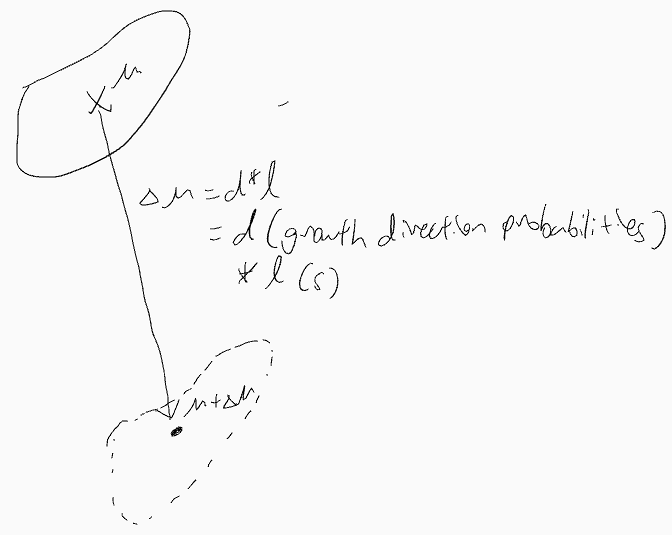 μ
Δμ = d*l
= d (growth direction probabilities)
* l (s)
μ+Δμ